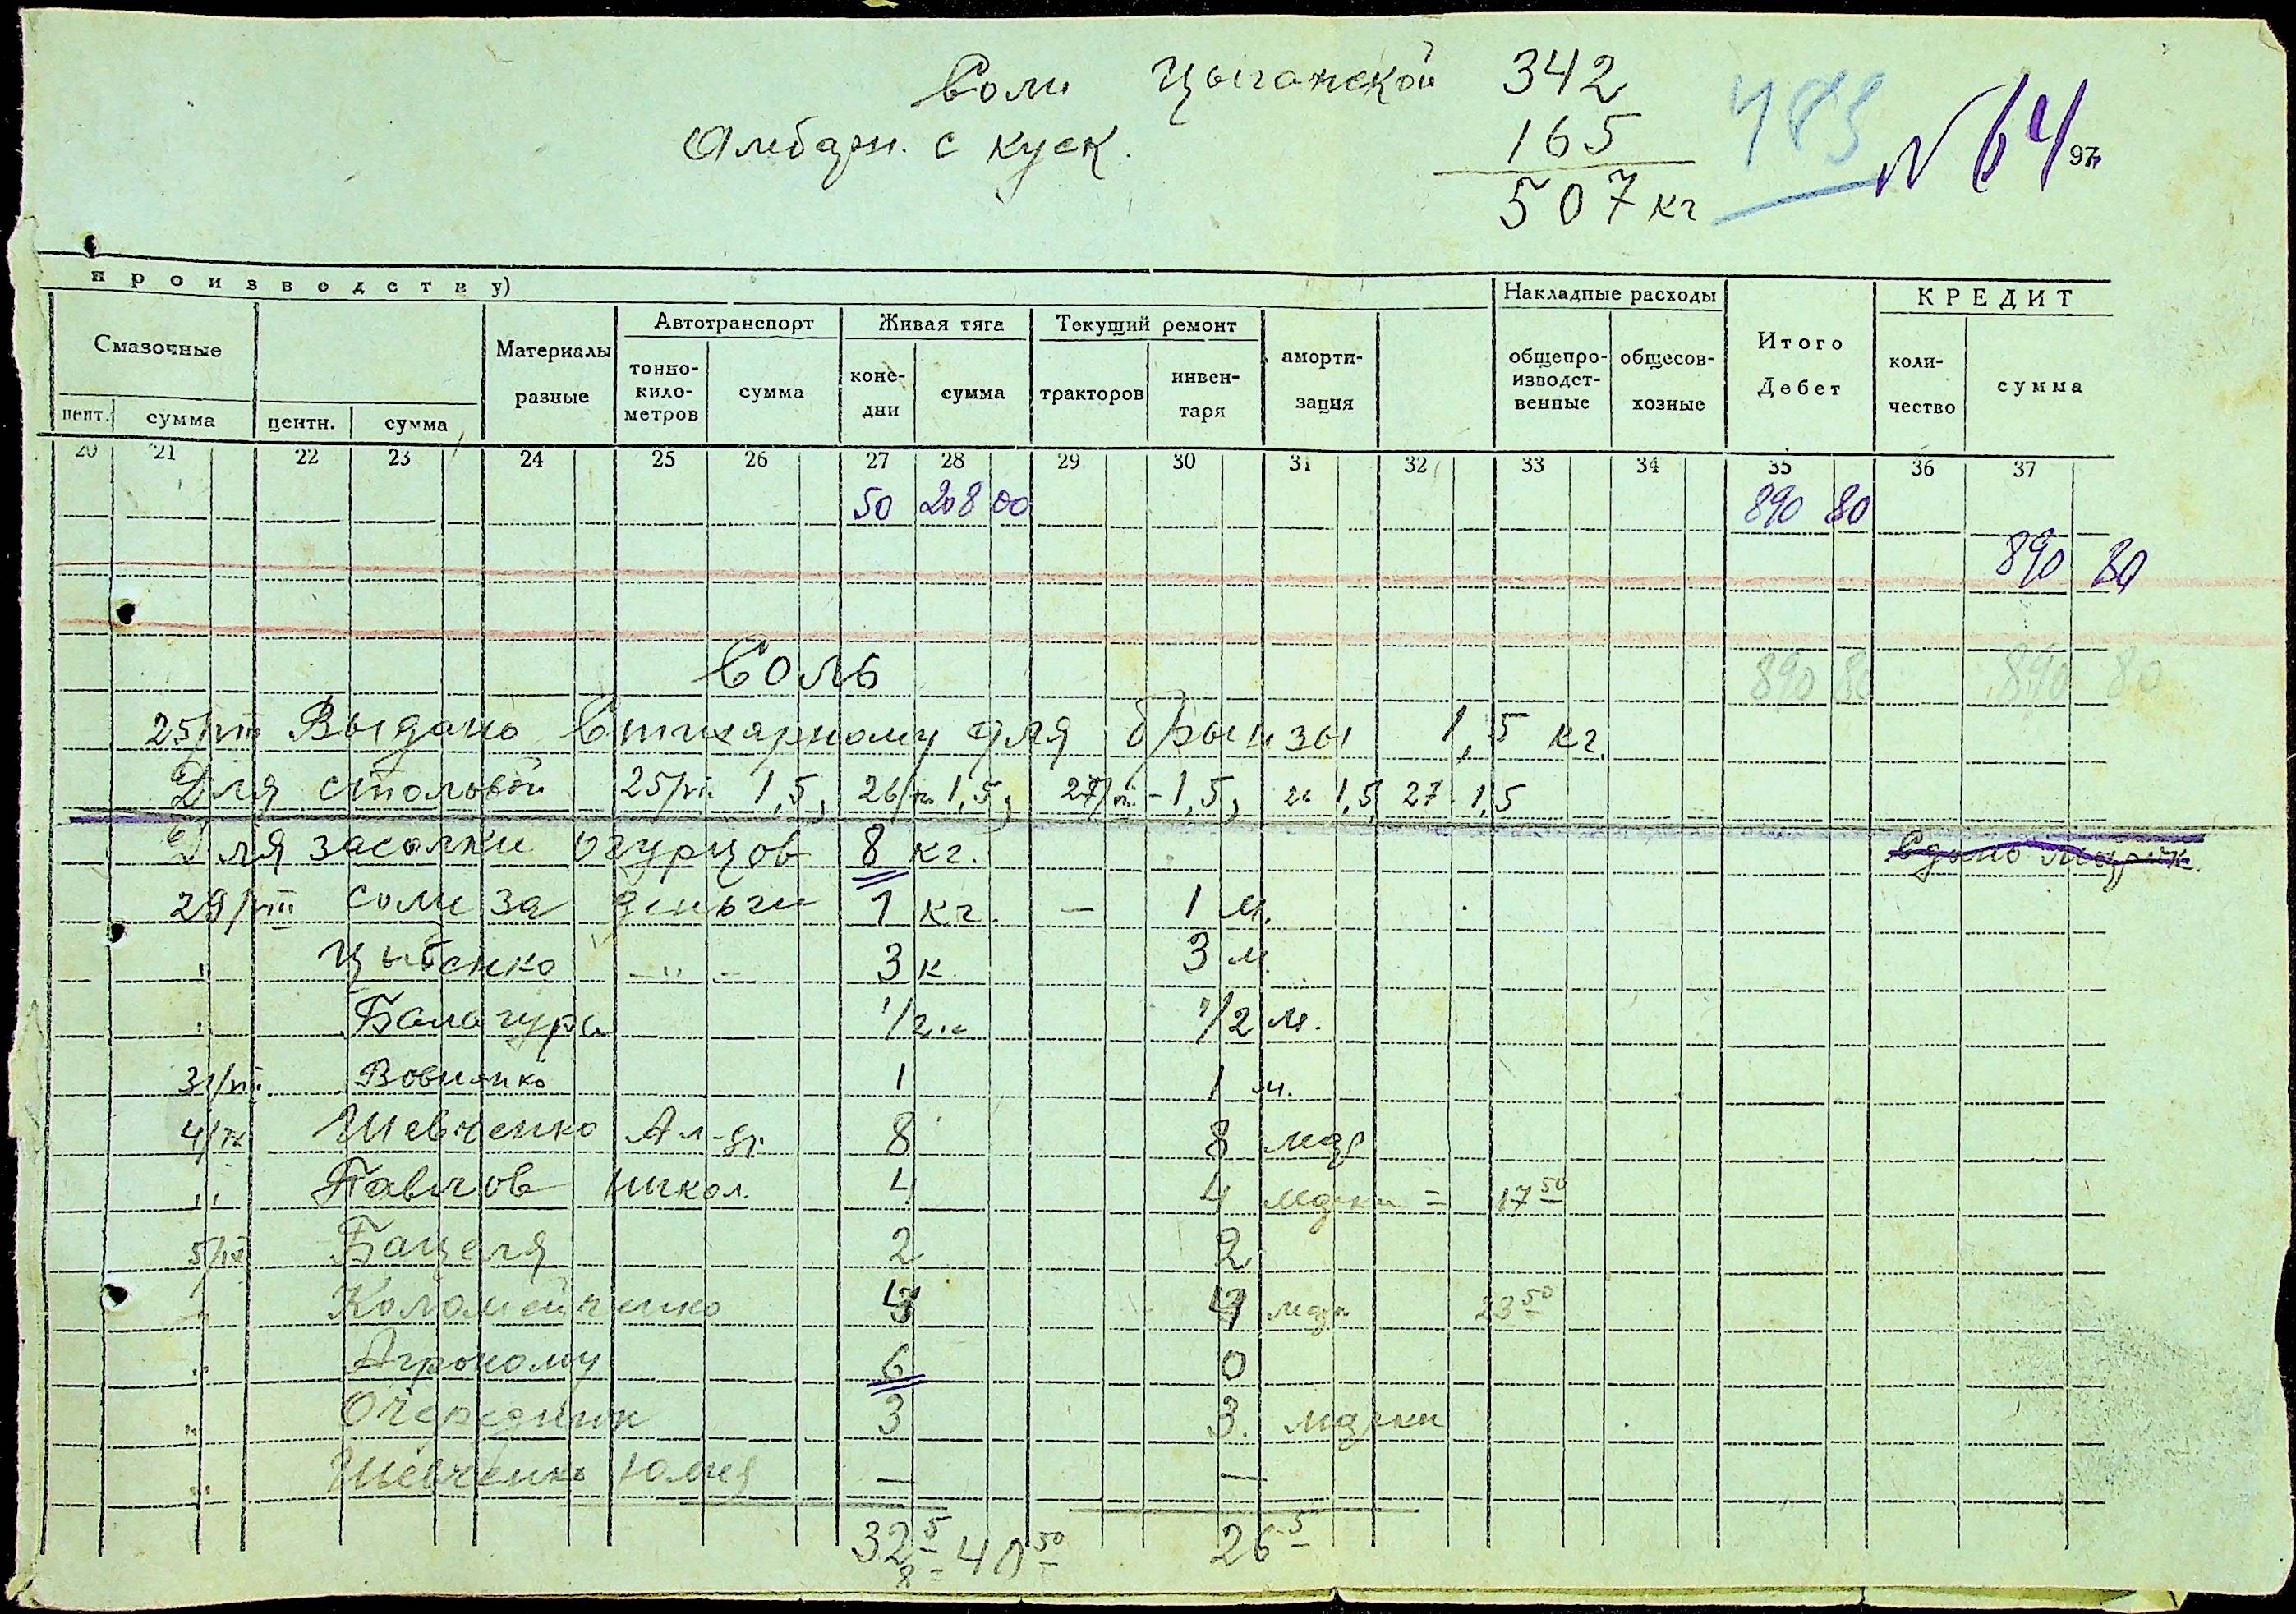 Соли Цыганской 342
Амбарн. с куск. 165
507 кг
N 64
97
производству)
Накладные расходы
КРЕДИТ
Смазочные
Материалы разные
Автотранспорт
Живая тяга
Текущий ремонт
аморти-зация
общепро-изводст-венные
общесов-хозные
Итого Дебет
коли-чество
сумма
цент. сумма центн. сумма
тонно-кило-метров сумма коне-дни сумма тракторов инвен-таря
20 21 22 23 24 25 26 27 28 29 30 31 32 33 34 35 36 37
50 208 00 890 80
890 80
Соль 890 80 890 80
25/VIII Выдано для брынзы 1,5 кг.
Для столовой 25/VIII 1,5, 26/VIII 1,5, 27/VIII - 1,5, 1,5, 27 1,5
Для засолки огурцов 8 кг.
29/VIII соли за деньги 1 кг. – 1 м.
" Цыбенко – " – 3 к 3 м.
" Балагура 1/2 1/2 м.
31/VIII 1 1 м.
4/IX Шевченко Ал-др. 8 8 мар
" Павлов Никол. 4 4 марки = 17 50
5/IX Бацеля 2 2
Коломейченко 4 4 мар 23 50
" Агроному 6 0
" Очередник 3 3. марки
" Шевченко Юлия — —
32 5 26 5
8 = 40 50